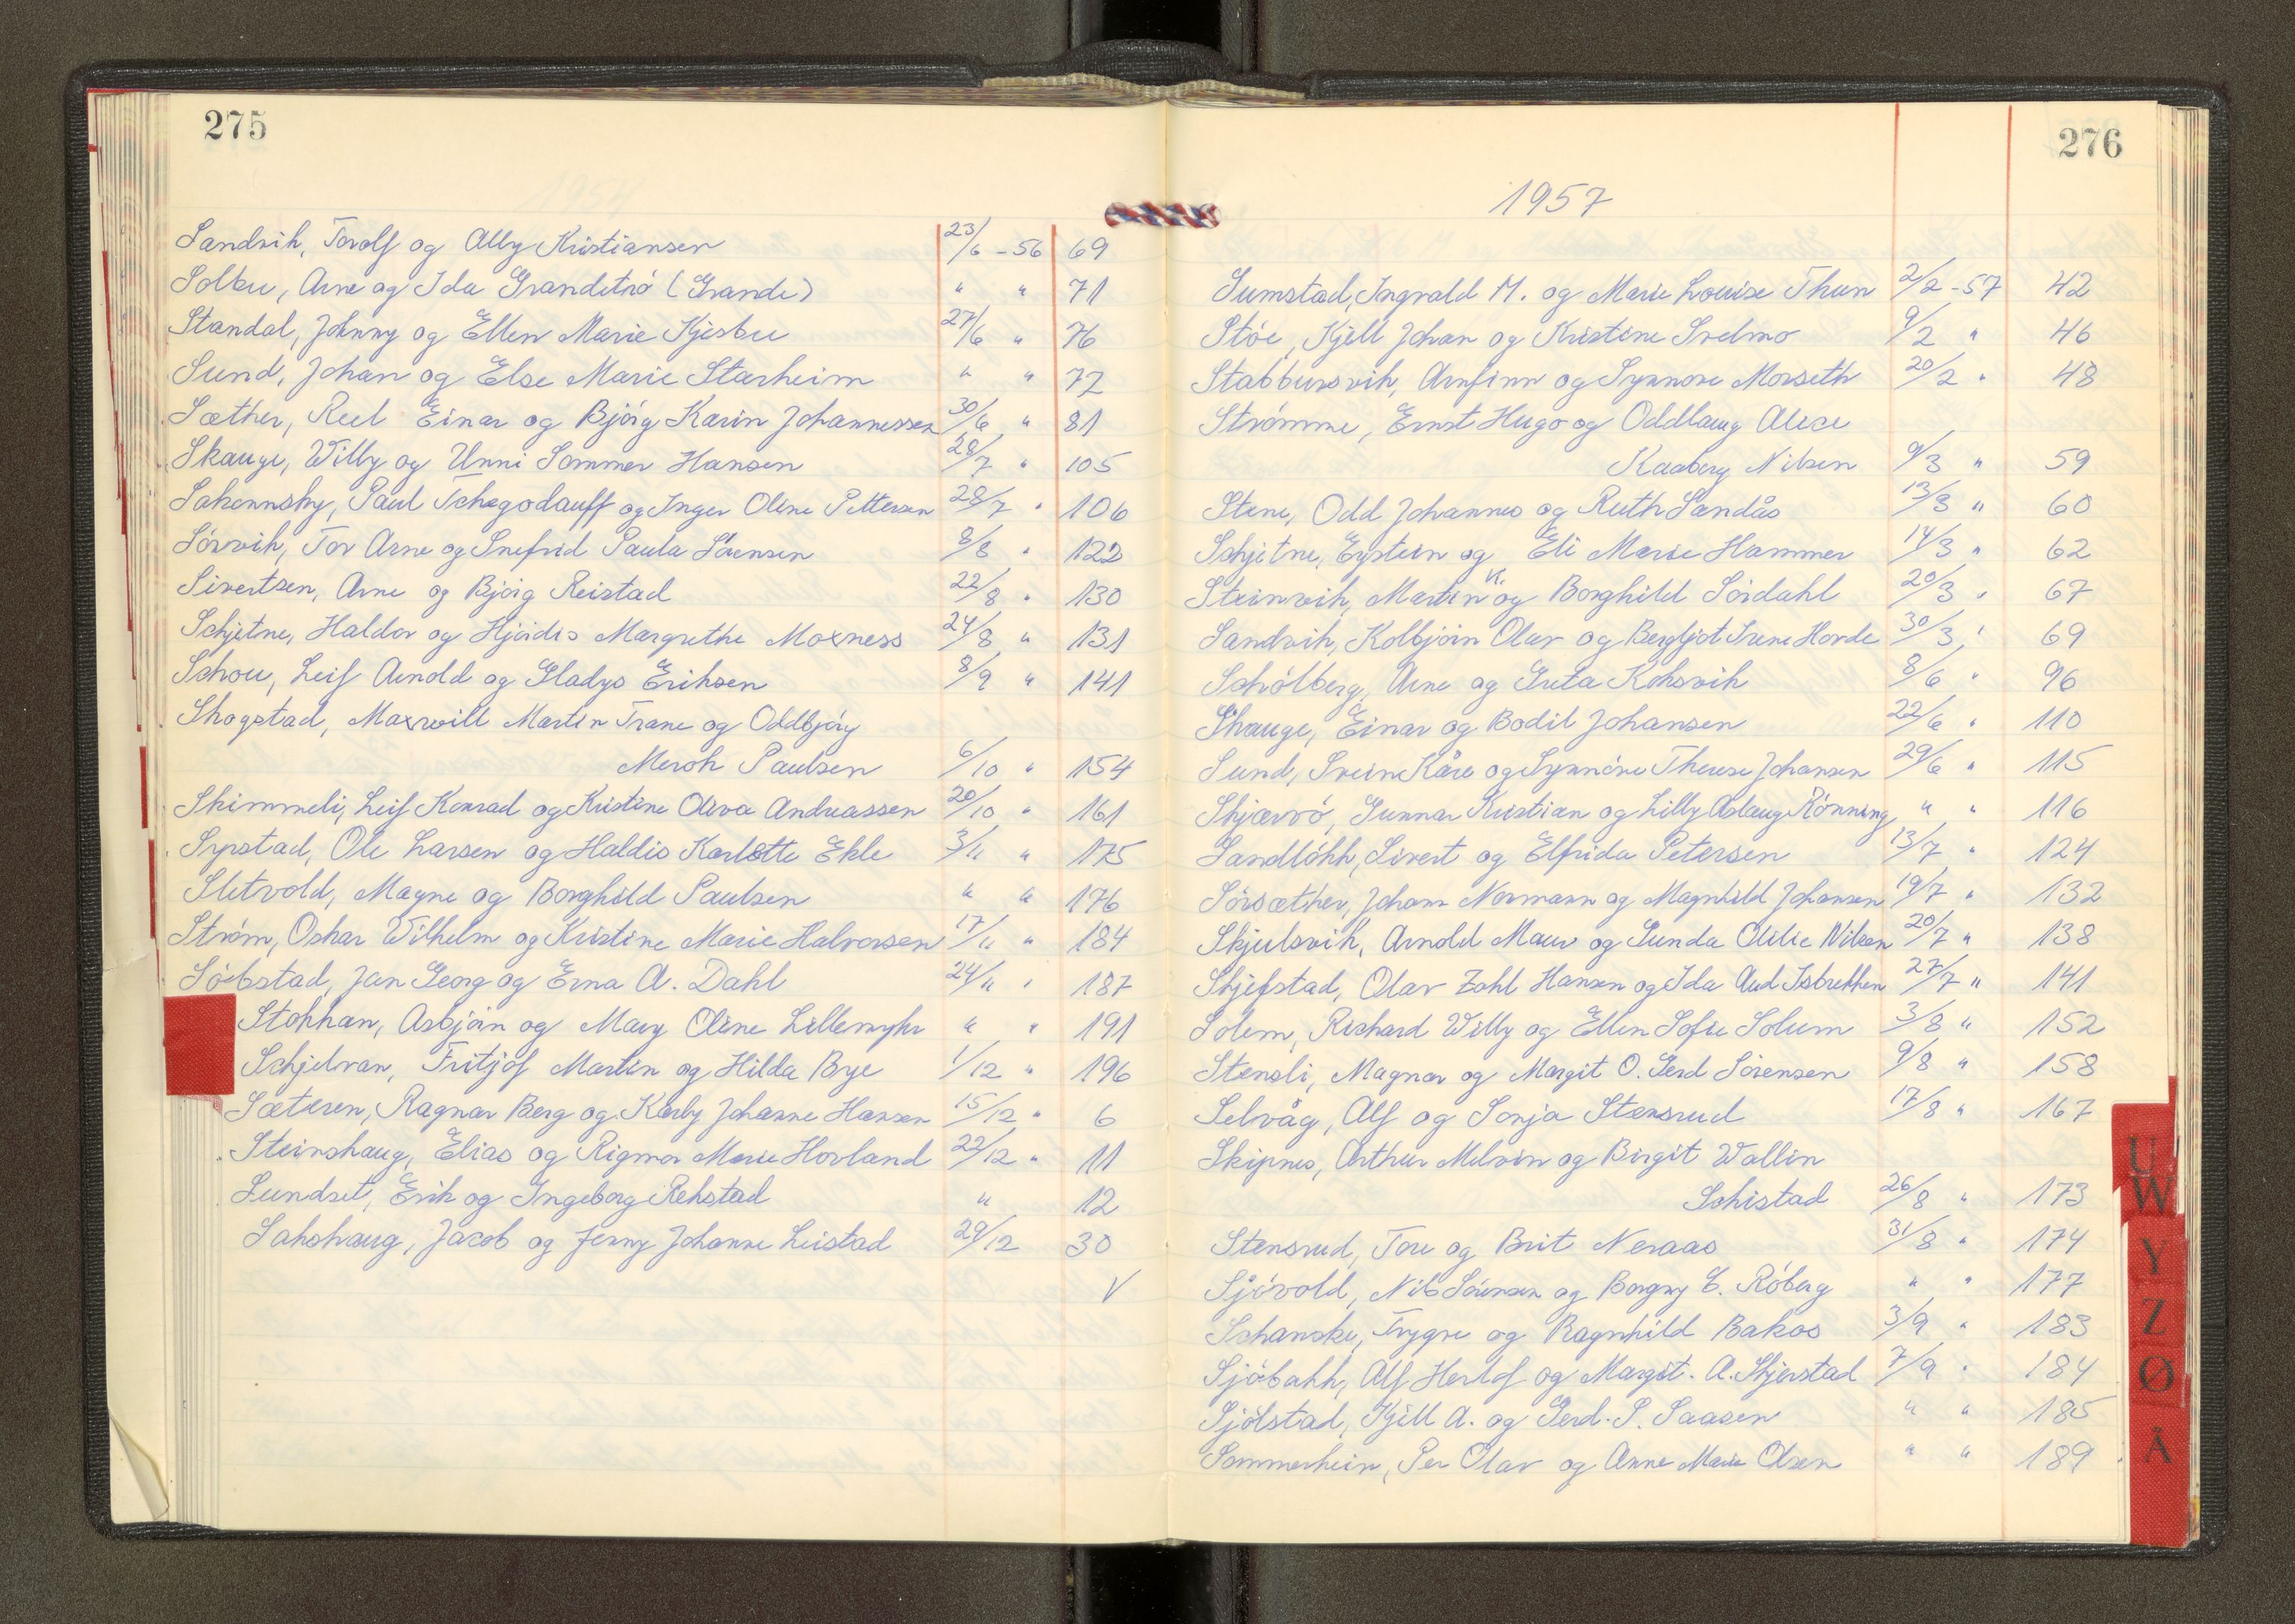 275
Sandvik, Torolf og Ally Kristiansen 23/6 - 56 69
Solbu, Arne og Ida Granditrö (Grande) " " 71
Standal, Johnny og Ellen Marie Kjesbu 27/6 " 76
Sund, Johan og Else Marie Starheim " " 72
Sæther, Reel Einar og Bjórg Karin Johannessen 30/6 " 81
Skauge, Willy og Unni Sommer Hansen 28/7 " 105
Sakennsky, Paul Tchegodauff og Inger Oline Pettersen 28/7 " 106
Sórvik, Tor Arne og Snefrid Paula Sórensen 8/8 " 122
Sivertsen, Arne og Bjórg Reistad 22/8 " 130
Schjetne, Haldor og Hjórdis Margrethe Moxness 24/8 " 131
Schou, Leif Arnold og Gladys Eriksen 8/9 " 141
Skogstad, Maxwill Martin Trane og Oddbjórg
Merok Paulsen 6/10 " 154
Skimmeli, Leif Konrad og Kristine Oliva Andreassen 20/10 " 161
Sypstad, Ole Larsen og Haldis Karlotte Ekle 3/11 " 175
Sletvold, Magne og Borghild Paulsen " " 176
Stróm, Oskar Wilhelm og Kristine Marie Halvorsen 17/11 " 184
Sóbstad, Jan Georg og Erna A. Dahl 24/11 " 187
Stokkan, Asbjórn og Mary Oline Lillemyhr " " 191
Schjelvan, Fritjof Martin og Hilda Brye 1/12 " 196
Sæteren, Ragnar Berg og Karly Johanne Hansen 15/12 " 6
Steinshaug, Elias og Rigmor Marie Hovland 22/12 " 11
Sundset, Erik og Ingeborg Rekstad " 12
Sakshaug, Jacob og Jenny Johanne Leistad 29/12 30
V
276
1957
Sumstad, Ingvald M. og Marie Louise Thun 2/2 - 57 42
Stóe, Kjell Johan og Kristine Svelmo 9/2 " 46
Stabbursvik, Arnfinn og Synnove Morseth 20/2 " 48
Strömme, Ernst Hugo og Oddlaug Alise
Kaaberg Nilsen 9/3 " 59
Stene, Odd Johannes og Ruth Sandås 13/3 " 60
Schjetne, Eystein og Eli Marie Hammer 14/3 " 62
Steinvik, Martin K. og Borghild Sórdahl 20/3 " 67
Sandvik, Kolbjórn Olav og Bergljot Irene Hovde 30/3 " 69
Schólberg, Arne og Greta Kohsvik 8/6 " 96
Skauge, Einar og Bodil Johansen 22/6 " 110
Sund, Svein Kåre og Synnöve Therese Johansen 29/6 " 115
Skjærvó, Gunnar Kristian og Lilly Aslaug Rónning " " 116
Sandlókk, Sivert og Elfrida Petersen 13/7 " 124
Sórsæther, Johan Normann og Magnhild Johansen 19/7 " 132
Skjulsvik, Arnold Maur og Gunda Otilie Nilsen 20/7 " 138
Skjefstad, Olav Zahl Hansen og Ida Aud Isbrekken 27/7 " 141
Solem, Richard Willy og Ellen Sofie Solum 3/8 " 152
Stensli, Magnar og Margit O. Gerd Sörensen 9/8 " 158
Selvåg, Alf og Sonja Stensrud 17/8 " 167
Skipnes, Arthur Melvin og Birgit Wallin
Schistad 26/8 " 173
Stensrud, Tore og Brit Neraas 31/8 " 174
Sjövold, Nils Sórensen og Borgny E. Róberg " " 177
Schanske, Trygve og Ragnhild Bakos 3/9 " 183
Sjóbakk, Alf Herlof og Margit. A. Skjerstad 7/9 " 184
Sjólstad, Kjell A. og Gerd. P. Saasen " " 185
Sommerhein, Per Olav og Anne Marie Olsen " " 189
U
W
Y
Z
Ø
Å